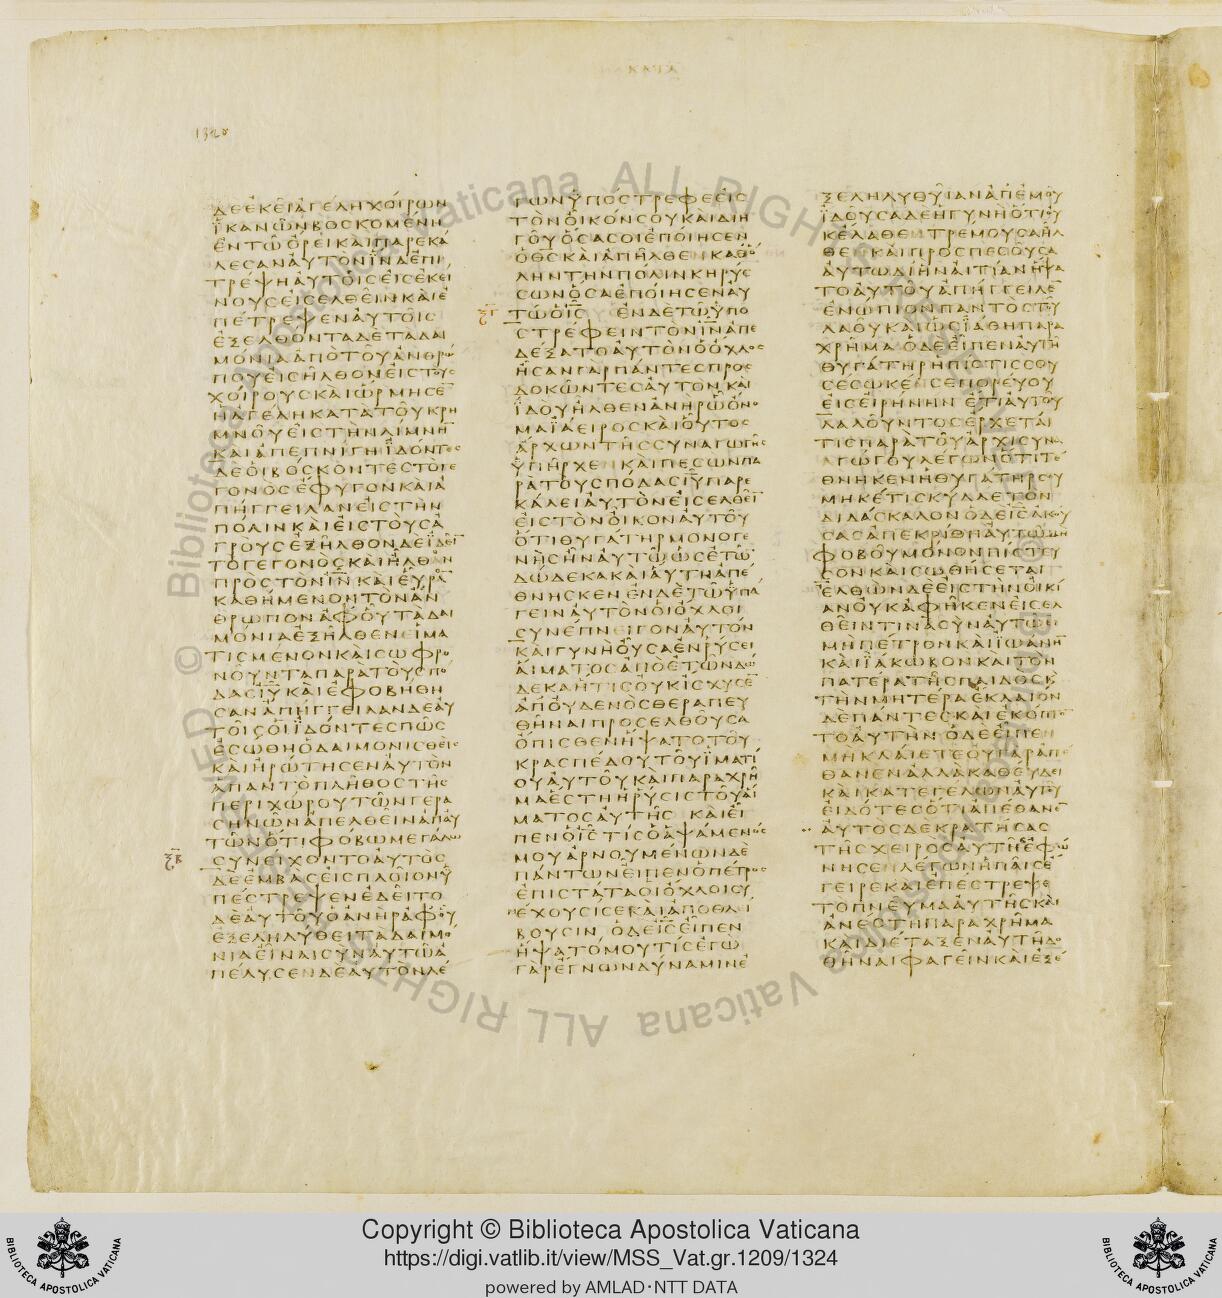 ΚΑΤΑ
1320
ΔΕΕΚΕΙΑΓΕΛΗΧΟΙΡΩΝ
ΙΚΑΝΩΝΒΟΣΚΟΜΕΝΗ
ΕΝΤΩΟΡΕΙΚΑΙΠΑΡΕΚΑ
ΛΕΣΑΝΑΥΤΟΝΙΝΑΕΠΙ
ΤΡΕΨΗΑΥΤΟΙΣΕΙΣΕΚΕΙ
ΝΟΥΣΕΙΣΕΛΘΕΙΝΚΑΙΕ
ΠΕΤΡΕΨΕΝΑΥΤΟΙΣ
ΕΞΕΛΘΟΝΤΑΔΕΤΑΔΑΙ
ΜΟΝΙΑΑΠΟΤΟΥΑΝΘΡΩ
ΠΟΥΕΙΣΗΛΘΟΝΕΙΣΤΟΥΣ
ΧΟΙΡΟΥΣΚΑΙΩΡΜΗΣΕ̅
ΗΑΓΕΛΗΚΑΤΑΤΟΥΚΡΗ
ΜΝΟΥΕΙΣΤΗΝΛΙΜΝΗ̅
ΚΑΙΑΠΕΠΝΙΓΗΙΔΟΝΤΕΣ
ΔΕΟΙΒΟΣΚΟΝΤΕΣΤΟΓΕ
ΓΟΝΟΣΕΦΥΓΟΝΚΑΙΑ
ΠΗΓΓΕΙΛΑΝΕΙΣΤΗΝ
ΠΟΛΙΝΚΑΙΕΙΣΤΟΥΣΑ
ΓΡΟΥΣΕΞΗΛΘΟΝΔΕΙΔΕΙ̅
ΤΟΓΕΓΟΝΟΣΚΑΙΗΛΘΑΝ
ΠΡΟΣΤΟΝΙ̅Ν̅ΚΑΙΕΥΡΑ̅
ΚΑΘΗΜΕΝΟΝΤΟΝΑΝ
ΘΡΩΠΟΝΑΦΟΥΤΑΔΑΙ
ΜΟΝΙΑΕΞΗΛΘΕΝΕΙΜΑ
ΤΙΣΜΕΝΟΝΚΑΙΣΩΦΡΟ
ΝΟΥΝΤΑΠΑΡΑΤΟΥΣΠΟ
ΔΑΣΙ̅Υ̅ΚΑΙΕΦΟΒΗΘΗ
ΣΑΝΑΠΗΓΓΕΙΛΑΝΔΕΑΥ
ΤΟΙΣΟΙΙΔΟΝΤΕΣΠΩΣ
ΕΣΩΘΗΟΔΑΙΜΟΝΙΣΘΕΙΣ
ΚΑΙΗΡΩΤΗΣΕΝΑΥΤΟΝ
ΑΠΑΝΤΟΠΛΗΘΟΣΤΗΣ
ΠΕΡΙΧΩΡΟΥΤΩΝΓΕΡΑ
ΣΗΝΩΝΑΠΕΛΘΕΙΝΑΠΑΥ
ΤΩΝΟΤΙΦΟΒΩΜΕΓΑΛΩ
ΞΒ
ΣΥΝΕΙΧΟΝΤΟΑΥΤΟΣ
ΔΕΕΜΒΑΣΕΙΣΠΛΟΙΟΝΥ
ΠΕΣΤΡΕΨΕΝΕΔΕΙΤΟ
ΔΕΑΥΤΟΥΟΑΝΗΡΑΦΟΥ
ΕΞΕΛΗΛΥΘΕΙΤΑΔΑΙΜΟ
ΝΙΑΕΙΝΑΙΣΥΝΑΥΤΩΑ
ΠΕΛΥΣΕΝΔΕΑΥΤΟΝΛΕ
ΓΩΝΥΠΟΣΤΡΕΦΕΕΙΣ
ΤΟΝΟΙΚΟΝΣΟΥΚΑΙΔΙΗ
ΓΟΥΟΣΑΣΟΙΕΠΟΙΗΣΕΝ
ΟΘ̅Σ̅ΚΑΙΑΠΗΛΘΕΝΚΑΘΟ
ΛΗΝΤΗΝΠΟΛΙΝΚΗΡΥΣ
ΣΩΝΟΣΑΕΠΟΙΗΣΕΝΑΥ
ΞΓ
ΤΩΟΙ̅Σ̅ ΕΝΔΕΤΩΥΠΟ
ΣΤΡΕΦΕΙΝΤΟΝΙ̅Ν̅ΑΠΕ
ΔΕΞΑΤΟΑΥΤΟΝΟΟΧΛΟΣ
ΗΣΑΝΓΑΡΠΑΝΤΕΣΠΡΟΣ
ΔΟΚΩΝΤΕΣΑΥΤΟΝΚΑΙ
ΙΔΟΥΗΛΘΕΝΑΝΗΡΩΟΝΟ
ΜΑΙΑΕΙΡΟΣΚΑΙΟΥΤΟΣ
ΑΡΧΩΝΤΗΣΣΥΝΑΓΩΓΗΣ
ΥΠΗΡΧΕΝΚΑΙΠΕΣΩΝΠΑ
ΡΑΤΟΥΣΠΟΔΑΣΙ̅Υ̅ΠΑΡΕ
ΚΑΛΕΙΑΥΤΟΝΕΙΣΕΛΘΕΙ̅
ΕΙΣΤΟΝΟΙΚΟΝΑΥΤΟΥ
ΟΤΙΘΥΓΑΤΗΡΜΟΝΟΓΕ
ΝΗΣΗΝΑΥΤΩΩΣΕΤΩ̅
ΔΩΔΕΚΑΚΑΙΑΥΤΗΑΠΕ
ΘΝΗΣΚΕΝΕΝΔΕΤΩΥΠΑ
ΓΕΙΝΑΥΤΟΝΟΙΟΧΛΟΙ
ΣΥΝΕΠΝΕΙΓΟΝΑΥΤΟΝ
ΚΑΙΓΥΝΗΟΥΣΑΕΝΡΥΣΕΙ
ΑΙΜΑΤΟΣΑΠΟΕΤΩΝΔΩ
ΔΕΚΑΗΤΙΣΟΥΚΙΣΧΥΣΕ̅
ΑΠΟΥΔΕΝΟΣΘΕΡΑΠΕΥ
ΘΗΝΑΙΠΡΟΣΕΛΘΟΥΣΑ
ΟΠΙΣΘΕΝΗΨΑΤΟΤΟΥ
ΚΡΑΣΠΕΔΟΥΤΟΥΙΜΑΤΙ
ΟΥΑΥΤΟΥΚΑΙΠΑΡΑΧΡΗ
ΜΑΕΣΤΗΗΡΥΣΙΣΤΟΥΑΙ
ΜΑΤΟΣΑΥΤΗΣ ΚΑΙΕΙ
ΠΕΝΟΙ̅Σ̅ΤΙΣΟΑΨΑΜΕΝΟΣ
ΜΟΥΑΡΝΟΥΜΕΝΩΝΔΕ
ΠΑΝΤΩΝΕΙΠΕΝΟΠΕΤΡΟΣ
ΕΠΙΣΤΑΤΑΟΙΟΧΛΟΙΣΥ
ΝΕΧΟΥΣΙΣΕΚΑΙΑΠΟΘΛΕΙ
ΒΟΥΣΙΝ ΟΔΕΙ̅Σ̅ΕΙΠΕΝ
ΗΨΑΤΟΜΟΥΤΙΣΕΓΩ
ΓΑΡΕΓΝΩΝΔΥΝΑΜΙΝΕ
ΞΕΛΗΛΥΘΥΙΑΝΑΠΕΜΟΥ
ΙΔΟΥΣΑΔΕΗΓΥΝΗΟΤΙΟΥ
ΚΕΛΑΘΕΝΤΡΕΜΟΥΣΑΗΛ
ΘΕΝΚΑΙΠΡΟΣΠΕΣΟΥΣΑ
ΑΥΤΩΔΙΗΝΑΙΤΙΑΝΗΨΑ
ΤΟΑΥΤΟΥΑΠΗΓΓΕΙΛΕ̅
ΕΝΩΠΙΟΝΠΑΝΤΟΣΤΟΥ
ΛΑΟΥΚΑΙΩΣΙΑΘΗΠΑΡΑ
ΧΡΗΜΑ ΟΔΕΕΙΠΕΝΑΥΤΗ
ΘΥΓΑΤΗΡΗΠΙΣΤΙΣΣΟΥ
ΣΕΣΩΚΕΝΣΕΠΟΡΕΥΟΥ
ΕΙΣΕΙΡΗΝΗΝ ΕΤΙΑΥΤΟΥ
ΛΑΛΟΥΝΤΟΣΕΡΧΕΤΑΙ
ΤΙΣΠΑΡΑΤΟΥΑΡΧΙΣΥΝΑ
ΓΩΓΟΥΛΕΓΩΝΟΤΙΤΕ
ΘΝΗΚΕΝΗΘΥΓΑΤΗΡΣΟΥ
ΜΗΚΕΤΙΣΚΥΛΛΕΤΟΝ
ΔΙΔΑΣΚΑΛΟΝΟΔΕΙ̅Σ̅ΑΚΟΥ
ΣΑΣΑΠΕΚΡΙΘΗΑΥΤΩΜΗ
ΦΟΒΟΥΜΟΝΟΝΠΙΣΤΕΥ
ΣΟΝΚΑΙΣΩΘΗΣΕΤΑΙ
ΕΛΘΩΝΔΕΕΙΣΤΗΝΟΙΚΙ
ΑΝΟΥΚΑΦΗΚΕΝΕΙΣΕΛ
ΘΕΙΝΤΙΝΑΣΥΝΑΥΤΩΕΙ
ΜΗΠΕΤΡΟΝΚΑΙΙΩΑΝΗ̅
ΚΑΙΙΑΚΩΒΟΝΚΑΙΤΟΝ
ΠΑΤΕΡΑΤΗΣΠΑΙΔΟΣΚ
ΤΗΝΜΗΤΕΡΑΕΚΛΑΙΟΝ
ΔΕΠΑΝΤΕΣΚΑΙΕΚΟΠΤΟ̅
ΤΟΑΥΤΗΝ ΟΔΕΕΙΠΕΝ
ΜΗΚΛΑΙΕΤΕΟΥΓΑΡΑΠΕ
ΘΑΝΕΝΑΛΛΑΚΑΘΕΥΔΕΙ
ΚΑΙΚΑΤΕΓΕΛΩΝΑΥΤΟΥ
ΕΙΔΟΤΕΣΟΤΙΑΠΕΘΑΝΕ̅
ΑΥΤΟΣΔΕΚΡΑΤΗΣΑΣ
ΤΗΣΧΕΙΡΟΣΑΥΤΗΣΕΦΩ
ΝΗΣΕΝΛΕΓΩΝΗΠΑΙΣΕ
ΓΕΙΡΕΚΑΙΕΠΕΣΤΡΕΨΕ
ΤΟΠΝΕΥΜΑΑΥΤΗΣΚΑΙ
ΑΝΕΣΤΗΠΑΡΑΧΡΗΜΑ
ΚΑΙΔΙΕΤΑΞΕΝΑΥΤΗΔΟ
ΘΗΝΑΙΦΑΓΕΙΝΚΑΙΕΞΕ
Copyright © Biblioteca Apostolica Vaticana
https://digi.vatlib.it/view/MSS_Vat.gr.1209/1324
powered by AMLAD·NTT DATA